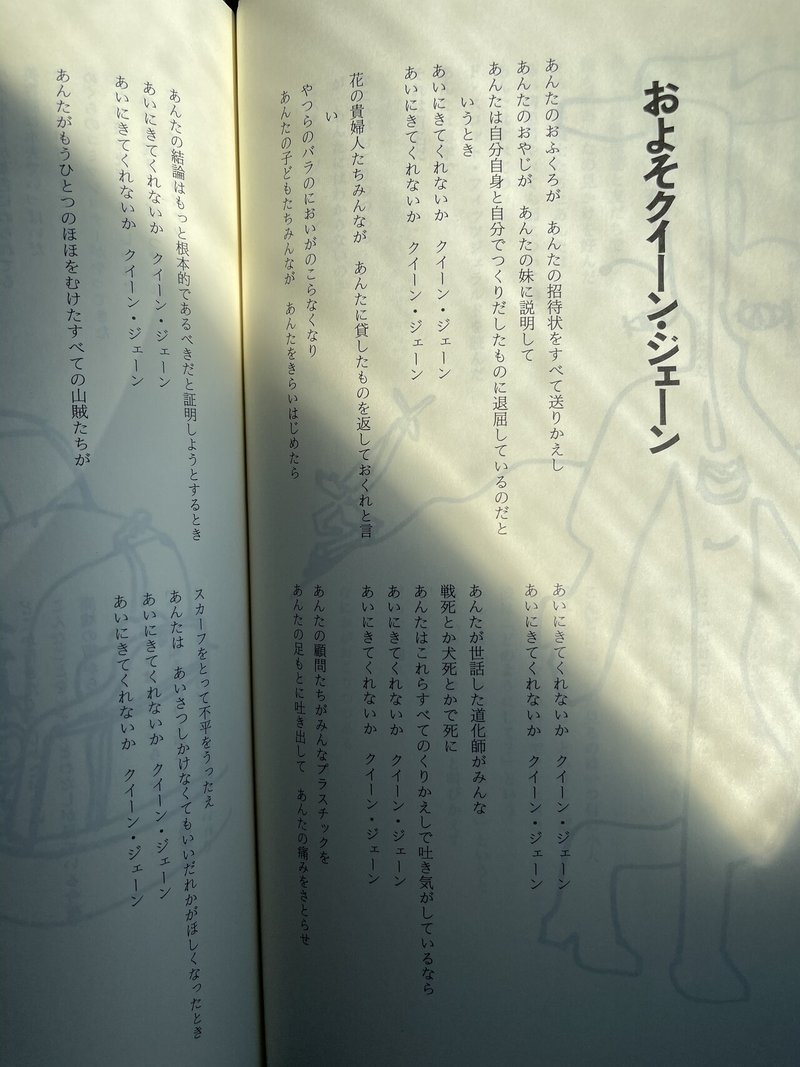 およそクイーン・ジェーン
あんたのおふくろが　あんたの招待状をすべて送りかえし
あんたのおやじが　あんたの妹に説明して
あんたは自分自身と自分でつくりだしたものに退屈しているのだと
いうとき
あいにきてくれないか　クイーン・ジェーン
あいにきてくれないか　クイーン・ジェーン
花の貴婦人たちみんなが　あんたに貸したものを返しておくれと言
い
やつらのバラのにおいがのこらなくなり
あんたの子どもたちみんなが　あんたをきらいはじめたら
あいにきてくれないか　クイーン・ジェーン
あいにきてくれないか　クイーン・ジェーン
あんたが世話した道化師がみんな
戦死とか犬死とかで死に
あんたはこれらすべてのくりかえしで吐き気がしているなら
あいにきてくれないか　クイーン・ジェーン
あいにきてくれないか　クイーン・ジェーン
あんたの顧問たちがみんなプラスチックを
あんたの足もとに吐き出して　あんたの痛みをさとらせ
あんたの結論はもっと根本的であるべきだと証明しようとするとき
あいにきてくれないか　クイーン・ジェーン
あいにきてくれないか　クイーン・ジェーン
あんたがもうひとつのほほをむけたすべての山賊たちが
スカーフをとって不平をうったえ
あんたは　あいさつしかけなくてもいいだれかがほしくなったとき
あいにきてくれないか　クイーン・ジェーン
あいにきてくれないか　クイーン・ジェーン